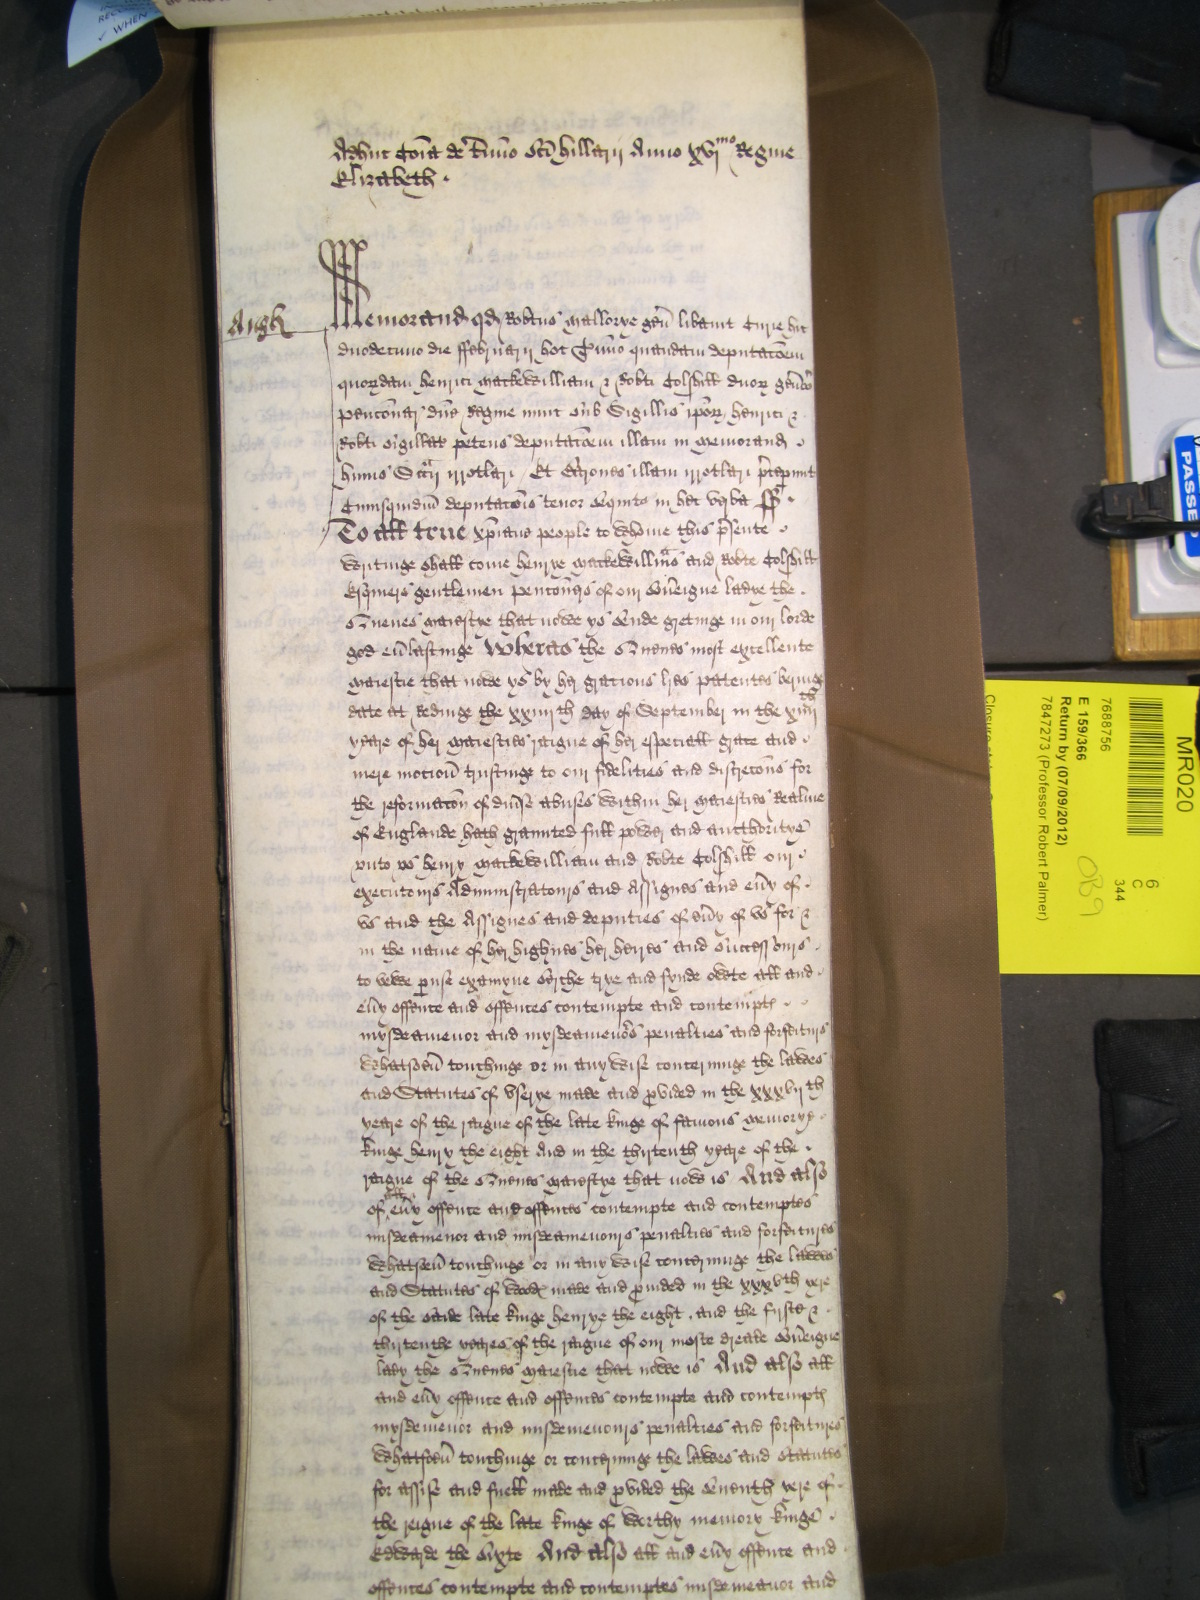 RECOR
✓ WHEN
Adhuc Coia de Timo Sci Hillarij Anno XVImo Regine
Elizabeth .
Angl
Memorand qd Robtus Mallorye gen libauit Curie hic
duodecimo die ffebruarij hoc Timo quandam deputacoem
quordam Henrici Mackewilliam & Robti Colshill duor
penconar dne Regine nunc sub Sigillis ipor Henrici &
Robti sigillat petens deputacoem illam in Memorand
huius Sccij irrotlari Et Barones illam irrotlari preceperunt
Cuiusquidm deputacois tenor sequitr in hec verba ss
To all true xpians people to whome this psente
writinge shall come Henrye Mackewillms and Robte Colshill
Esquiers gentlemen penconers of our soueigne ladye the
Quenes Maiestye that nowe ys sende gretinge in our lorde
god eulastinge Wheras the Quenes most excellente
Maiestie that nowe ys by her gracious lres patentes beringe
date at Redinge the xxiiiith day of September in the xiiiith
yeare of her Maiesties raigne of her especiall grace and
mere mocion trustinge to our fidelities and discrecons for
the reformacon of diuse abuses within her Maiesties Realme
of Englande hath graunted full power and aucthoritye
vnto vs Henry Mackewilliam and Robte Colshill our
executours Administratours and Assignes and euy of
vs and the Assignes and deputies of euy of vs for &
in the name of her highnes her heires and successours
to vewe puse examyne serche trye and fynde owte all and
euy offence and offences contempte and contempt
mysdeamenor and mysdeamenors penalties and forfeitures
whatsoeu touchinge or in any wise concerninge the lawes
and Statutes of vserye made and pvided in the xxxvijth
yeare of the raigne of the late kinge of famous memorye
kinge Henry the eight And in the thirtenth yeare of the
raigne of the Quenes Maiestye that nowe is And also
of all euy offence and offences contempte and contemptes
misdeamenor and misdeamenours penalties and forfeitures
whatsoeu touchinge or in any wise concerninge the lawes
and Statutes of wood made and pvided in the xxxvth yere
of the saide late kinge Henrye the eight , and the firste &
thirtenthe yeares of the raigne of our moste dreade soueigne
lady the Quenes Maiestie that nowe is And also all
and euy offence and offences contempte and contempt
mysdemenor and misdemenours penalties and forfeitures
whatsoeu touchinge or concerninge the lawes and Statutes
for assise and fuell made and pvided the seuenth yere of
the reigne of the late kinge of worthy memory kinge
Edwarde the Sixte And also all and euy offence and
offences contempte and contemptes misdemeanor and
PASSE
MR020
7688756
E 159/366
Return by (07/09/2012)
7847273 (Professor Robert Palmer)
6
C
344
OB9